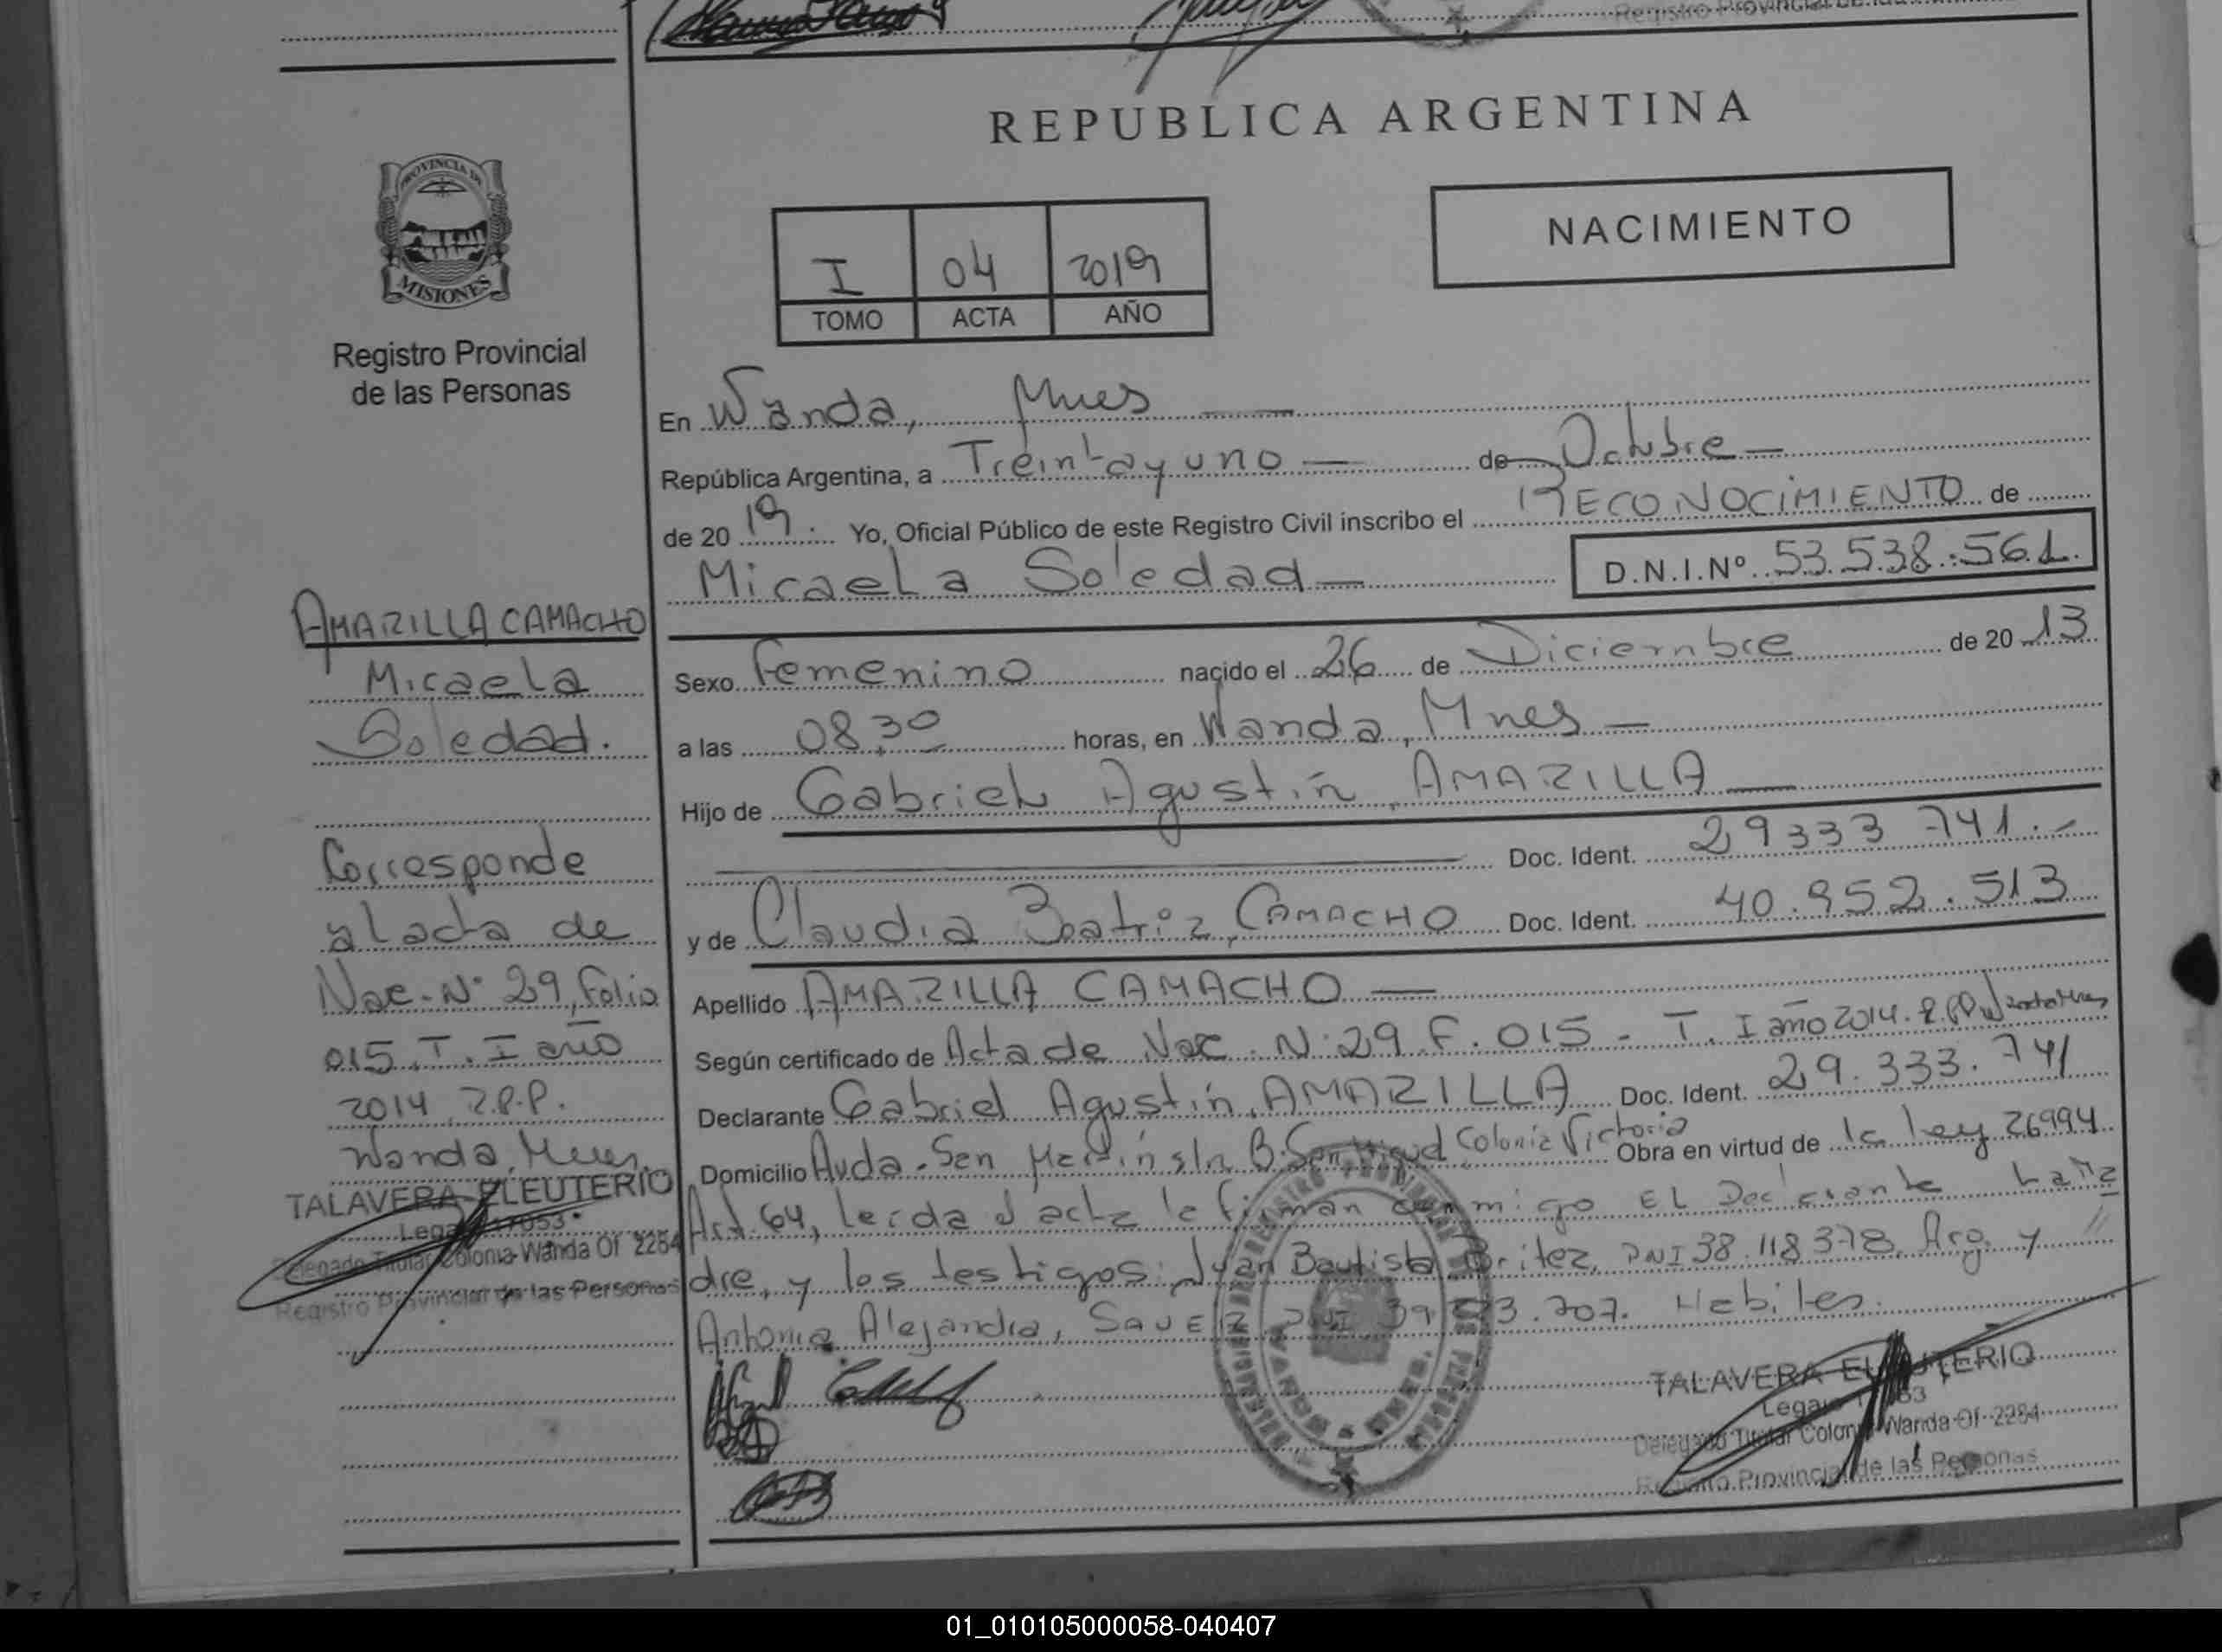 REPUBLICA ARGENTINA
PROVINCIA DE
MISIONES
Registro Provincial
de las Personas
NACIMIENTO
I 04 2019
TOMO ACTA AÑO
En Wanda, Mnes
República Argentina, a Treinta y uno de Octubre
de 20 19. Yo, Oficial Público de este Registro Civil inscribo el RECONOCIMIENTO de
Micaela Soledad D.N.I.Nº 53.538.561.
Sexo Femenino nacido el 26 de Diciembre de 20 13
a las 08,30 horas, en Wanda, Mnes
Hijo de Gabriel Agustín, AMARILLA
Doc. Ident. 29333 741.-
y de Claudia Beatriz, CAMACHO Doc. Ident. 40.952.513
Apellido AMARILLA CAMACHO
Según certificado de Acta de Nac. Nº 29 F. 015 - T. I año 2014.
Declarante Gabriel Agustín, AMARILLA Doc. Ident. 29.333.741
Domicilio Avda. San Martín s/n B. San Miguel Colonia Victoria Obra en virtud de la ley 26994
Art 64, leída el acta la firman conmigo EL Declarante La Ma
dre, y los testigos: Juan Bautista Britez, DNI 38.118.378, Arg. y
Antonia Alejandra, DNI 39 .707. Habiles.
AMARILLA CAMACHO
Micaela
Soledad.
Corresponde
al acta de
Nac. Nº 29, folio
015, T. I año
2014 R.P.P.
Wanda, Mnes.
TALAVERA ELEUTERIO
Delegado Titular Colonia Wanda Of 2284
Registro Provincial de las Personas
TALAVERA ELEUTERIO
Delegado Titular Colonia Wanda Of 2284
Registro Provincial de las Personas
01_010105000058-040407